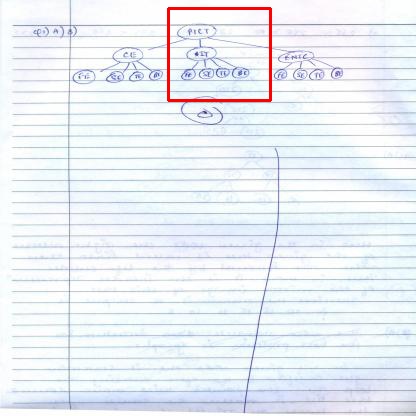 Q1) A) B)
PICT
CE IT ENTC
FE SE TE BE FE SE TE BE FE SE TE BE